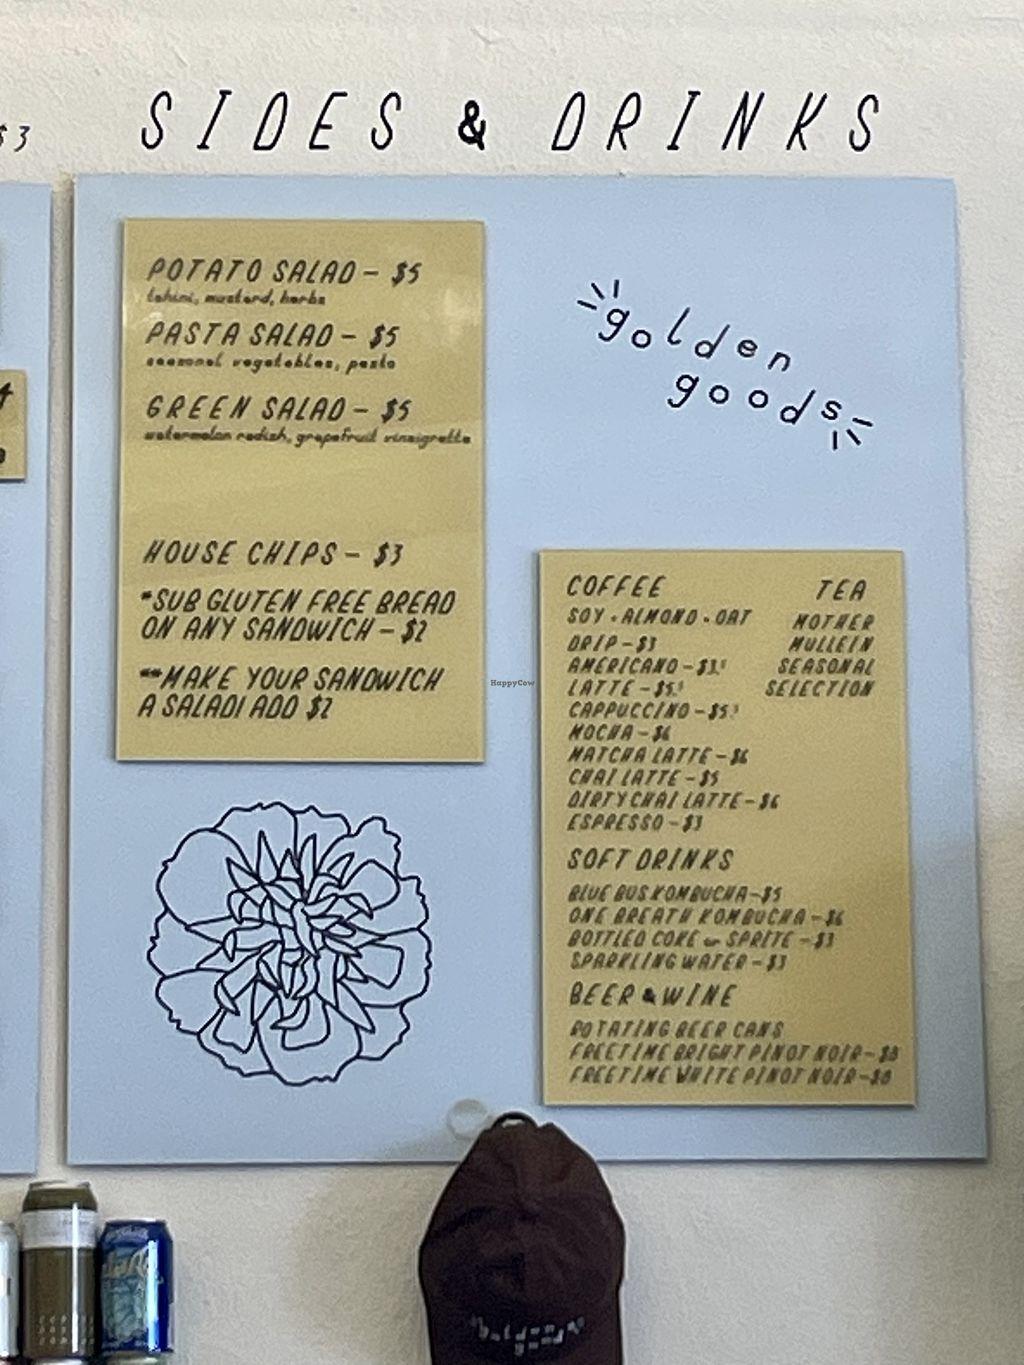 $3
SIDES & DRINKS
POTATO SALAD - $5
tahini, mustard, herbs
PASTA SALAD - $5
seasonal vegetables, pesto
GREEN SALAD - $5
watermelon radish, grapefruit vinaigrette
HOUSE CHIPS - $3
*SUB GLUTEN FREE BREAD
ON ANY SANDWICH - $2
**MAKE YOUR SANDWICH
A SALAD! ADD $2
golden
goods
HappyCow
COFFEE
SOY · ALMOND · OAT
DRIP - $3
AMERICANO - $3.
LATTE - $5.
CAPPUCCINO - $5.
MOCHA - $6
MATCHA LATTE - $6
CHAI LATTE - $5
DIRTY CHAI LATTE - $6
ESPRESSO - $3
TEA
MOTHER
MULLEIN
SEASONAL
SELECTION
SOFT DRINKS
BLUE BUS KOMBUCHA - $5
ONE BREATH KOMBUCHA - $6
BOTTLED COKE or SPRITE - $3
SPARKLING WATER - $3
BEER & WINE
ROTATING BEER CANS
FREETIME BRIGHT PINOT NOIR - $8
FREETIME WHITE PINOT NOIR - $8